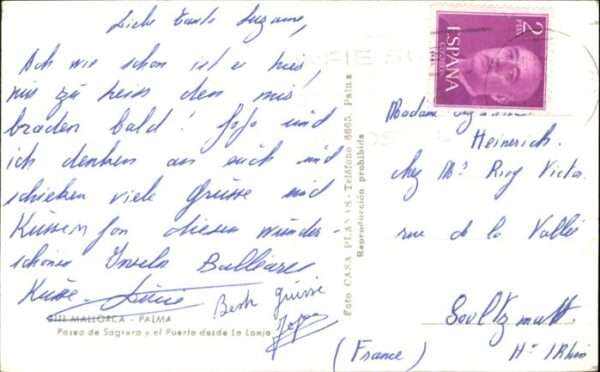 Liebe Tante Suzanne,
Ach wie schön ist es hier,
nur zu heiss den mir
braden bald! Jojo und
ich denken an euch und
schicken viele Grüsse und
Küssen fon diesen wunder-
schönen Inseln Balléares
Küsse - Lucie
Beste grüsse
Jojo
MALLORCA - PALMA
Paseo de Sagrera y el Puerto desde La Lonja
Foto CASA PLANAS - Teléfono 6665. Palma
Reproducción prohibida
2 PTAS
ESPAÑA
CORREOS
Madame Suzanne
Heinerich.
chez Mr Roy Victor
rue de la Vallée
Soultzmatt
Ht Rhin
(France)